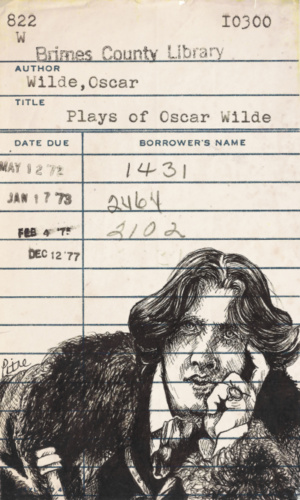 822 10300
W
Brimes County Library
AUTHOR
Wilde,Oscar
TITLE
Plays of Oscar Wilde
DATE DUE BORROWER'S NAME
MAY 12 72 1431
JAN 17 '73 2464
FEB 4 '75 2102
DEC 12 '77
Pitre